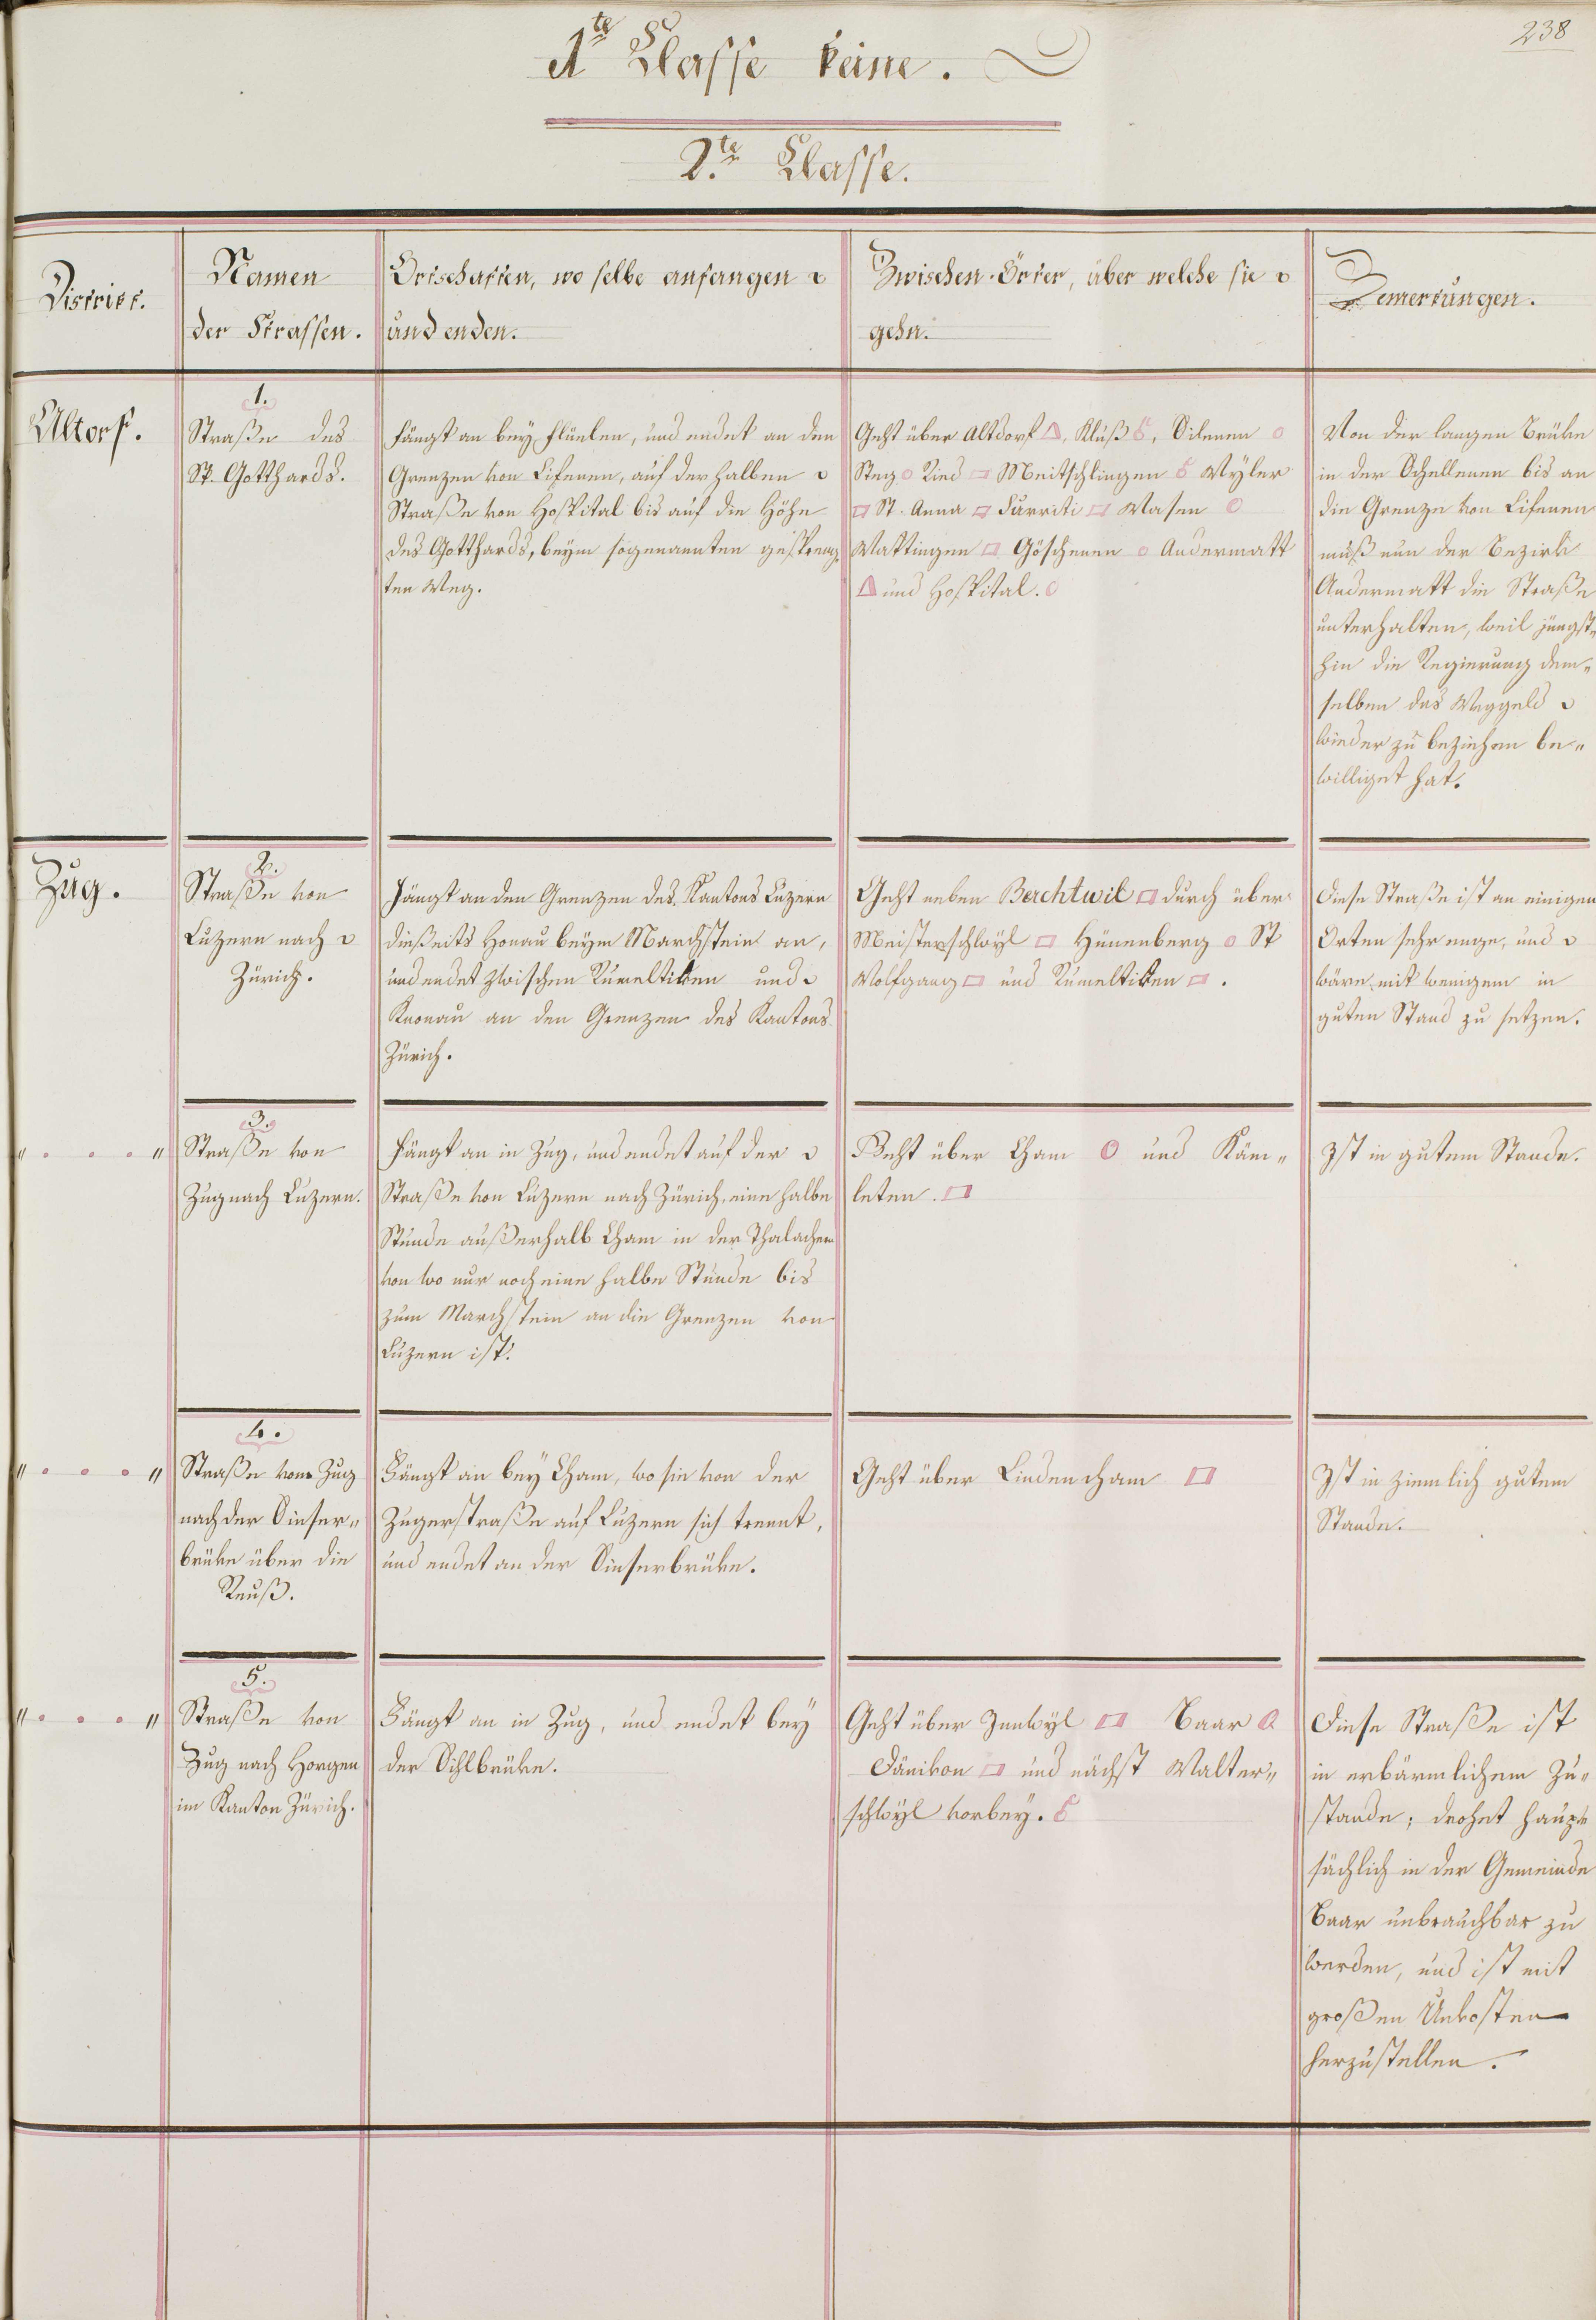 238
1te Classe keine.
2te Classe.
District.
Namen
der Strassen.
Ortschaften, wo selbe anfangen
und enden.
Zwischen-Örter, über welche sie
gehn.
Bemerkungen.
Altorf.
1.
Straße des
St. Gotthards.
Fängt an bey Flüelen, und endet an den
Grenzen von Lifenen, auf der halben
Straße von Hospital bis auf die Höhe
des Gotthards, beym sogenannten gespreng
ten Weg.
Geht über Altdorf, Kluß, Silenen
Steg Ried Meitschlingen Wyler
St. Anna Furriti Wasen
Wattingen Göschenen Andermatt
und Hospital.
Von der langen Brüke
in der Schellenen bis an
die Grenze von Lifenen
muß nun der Bezirk
Andermatt die Straße
unterhalten, weil jüngst„
hin die Regierung dem„
selben das Weggeld
wieder zu beziehen be„
williget hat.
Zug.
2.
Straße von
Luzern nach
Zürich.
Fängt an den Grenzen des Kantons Luzern
dießeits Honau beym Marchstein an,
und endet zwischen Rumeltiken und
Knonau an den Grenzen des Kantons
Zürich.
Geht neben Berchtwil durch über
Meisterschwyl Hünenberg St
Wolfgang und Rumeltiken.
Diese Straße ist an einigen
Orten sehr enge, und
wäre mit wenigem in
guten Stand zu setzen.
" . . . "
3.
Straße von
Zug nach Luzern.
Fängt an in Zug, und endet auf der
Straße von Luzern nach Zürich, eine halbe
Stunde außerhalb Cham in der Thalachern
von wo nur noch eine halbe Stunde bis
zum Marchstein an die Grenzen von
Luzern ist.
Geht über Cham und Käm„
leten.
Ist in gutem Stande.
" . . . "
4.
Straße von Zug
nach der Sinser„
brüke über die
Reuß.
Fängt an bey Cham, wo sie von der
Zugerstraße auf Luzern sich trennt,
und endet an der Sinserbrüke.
Geht über Lindencham
Ist in ziemlich gutem
Stande.
" . . . "
5.
Straße von
Zug nach Horgen
im Kanton Zürich.
Fängt an in Zug, und endet bey
der Sihlbrüke.
Geht über Innwyl Baar
Dänikon und nächst Walter„
schwyl vorbey.
Diese Straße ist
in erbärmlichem Zu„
stande; drohet haupt
sächlich in der Gemeinde
Baar unbrauchbar zu
werden, und ist mit
großen Unkosten
herzustellen.